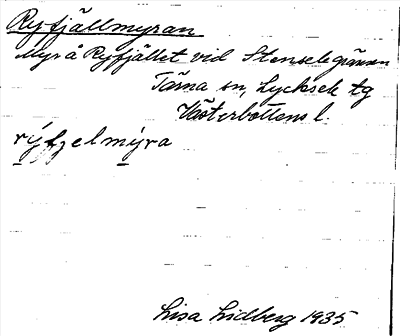 Ryfjällmyran
Myr å Ryfjället vid Stenselegränsen
Tärna sn, Lycksele tg
Västerbottens l.
rýfzelmýra
Lisa Lidberg 1935